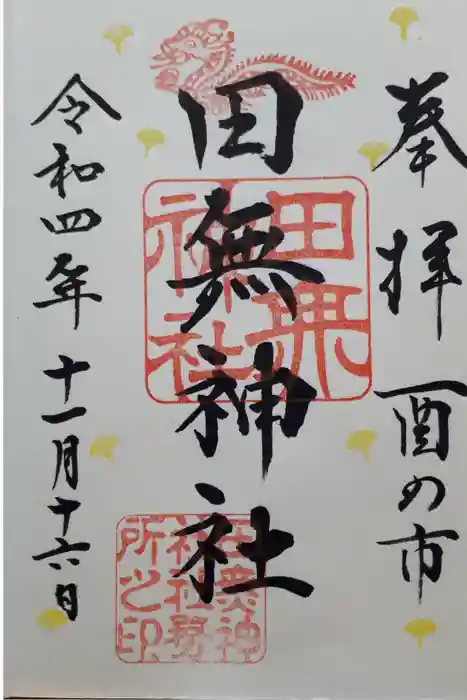 奉拝 酉の市
田無神社
令和四年 十一月十六日
田無神社
田無神社務所之印